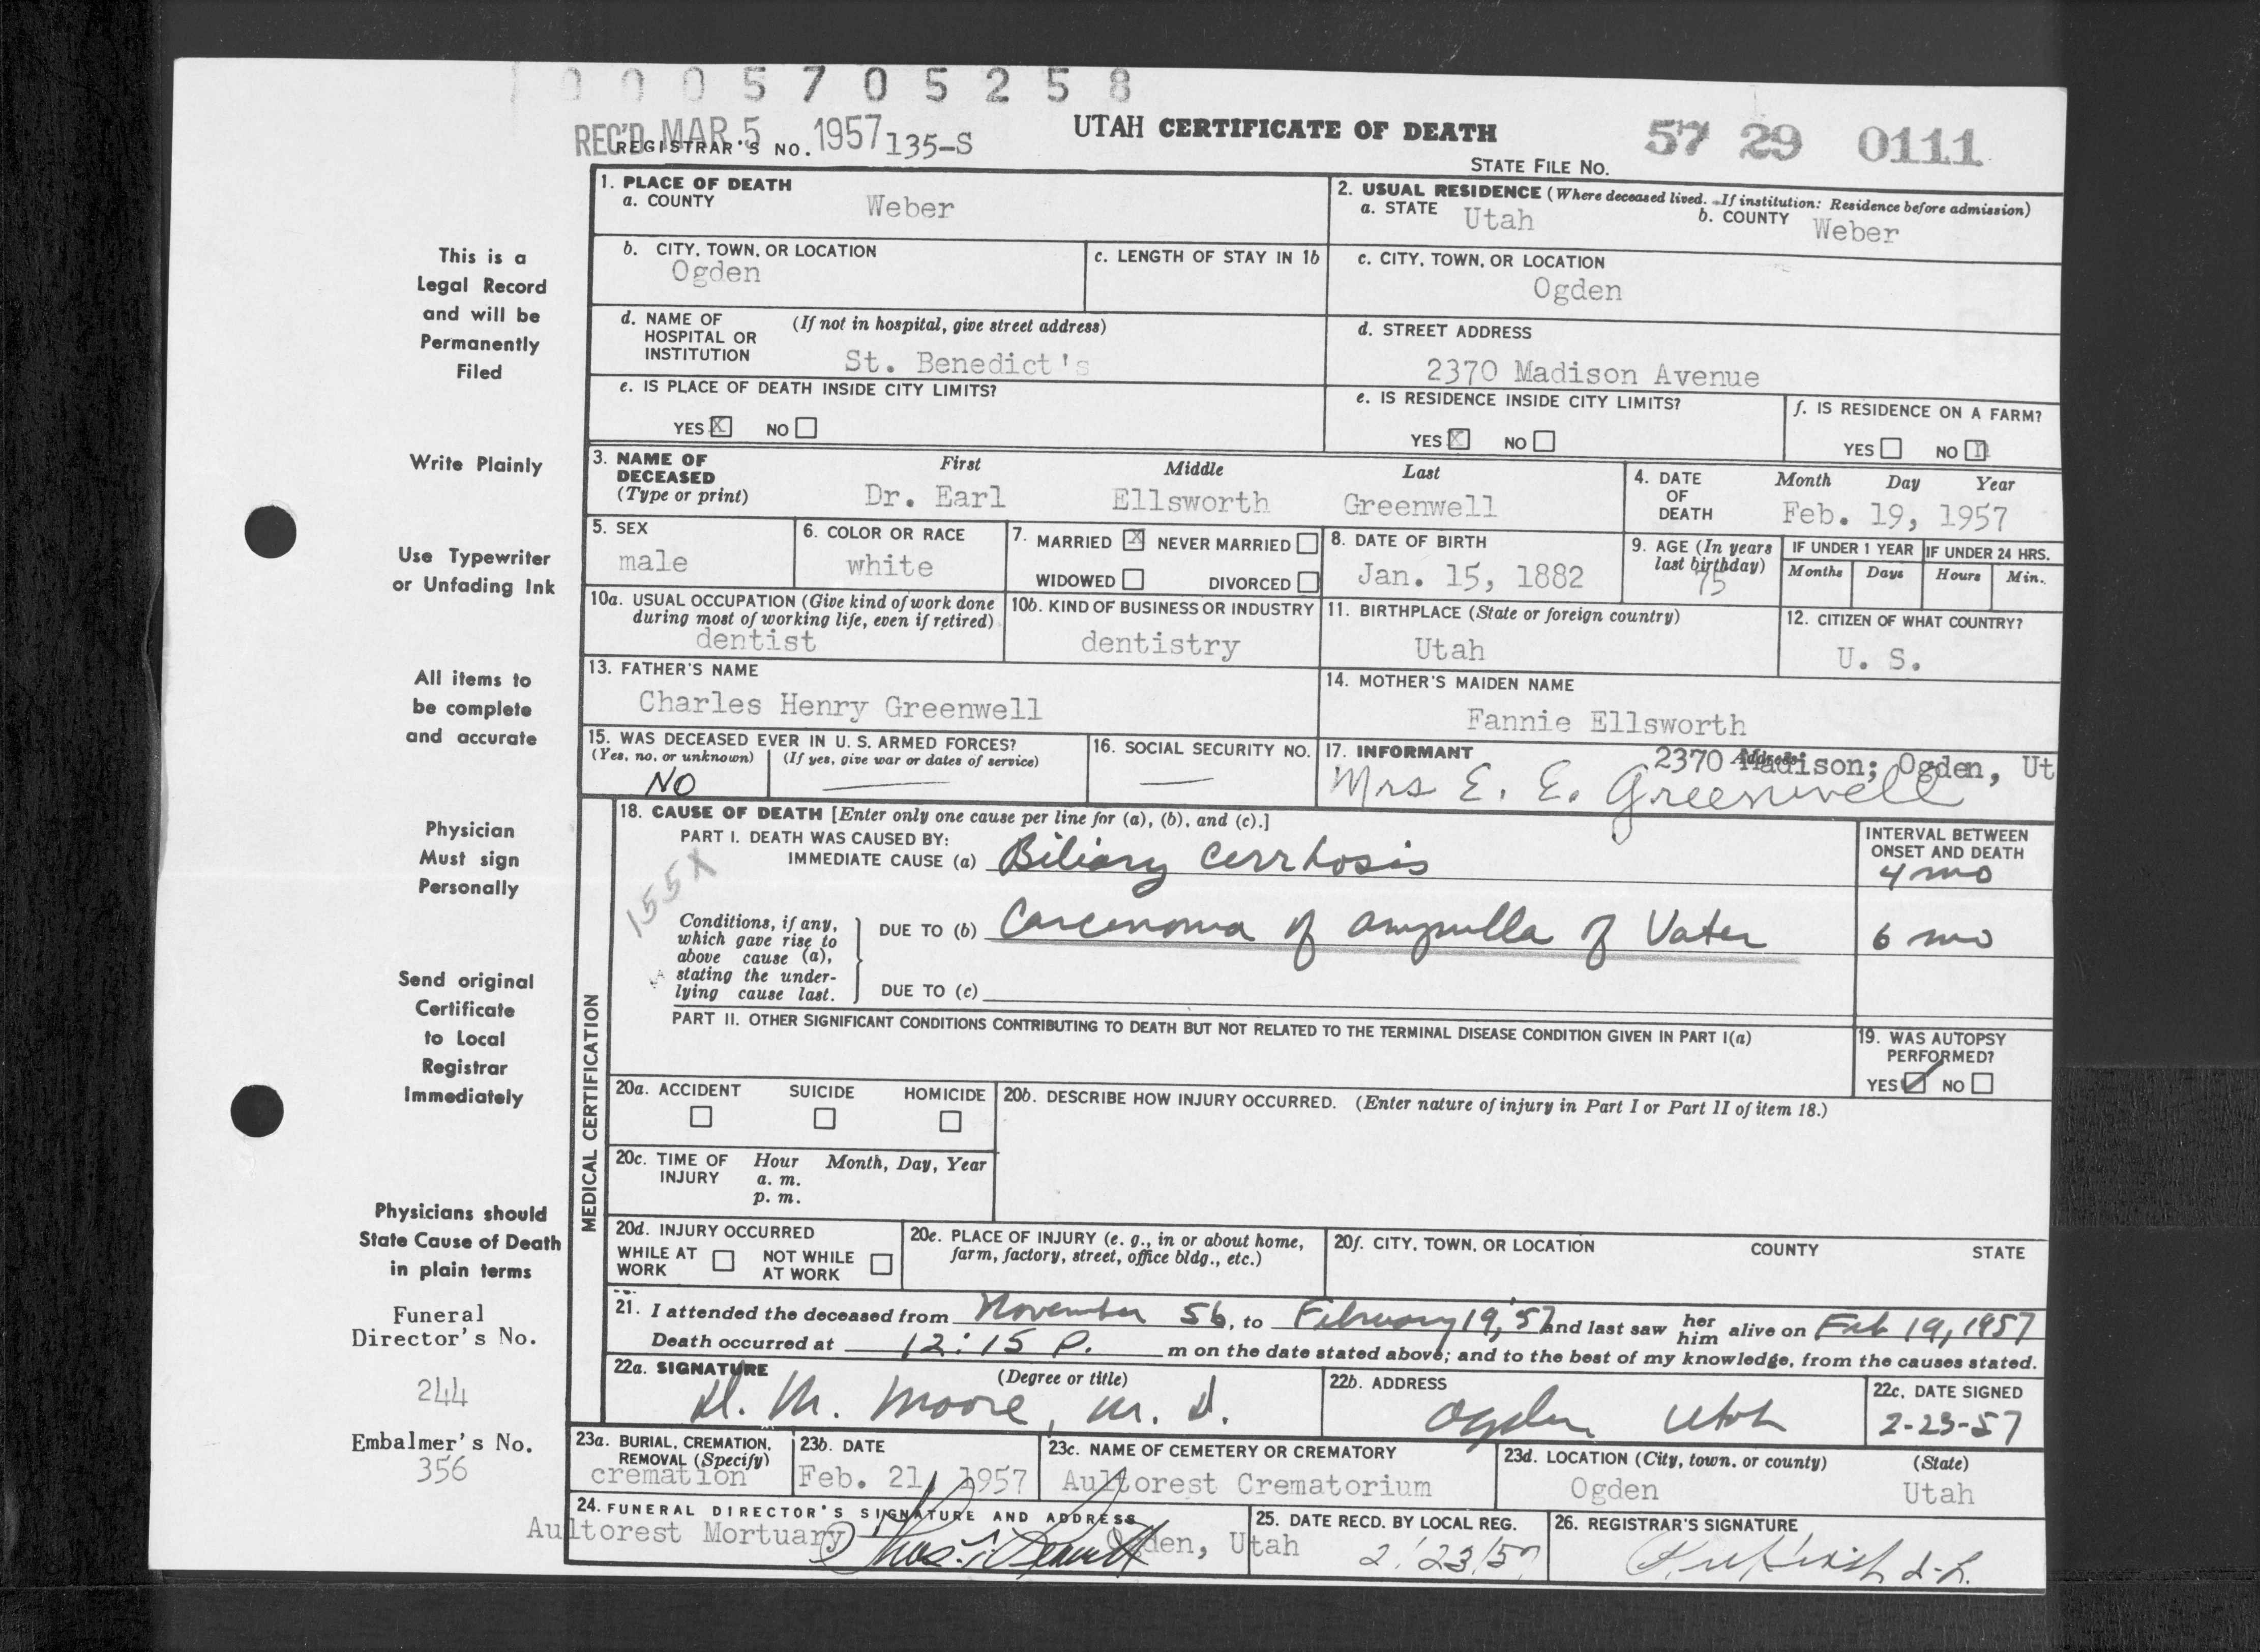 0005705258
REC'D MAR 5 1957
REGISTRAR'S NO. 135-S
UTAH CERTIFICATE OF DEATH
STATE FILE NO. 57 29 0111
This is a
Legal Record
and will be
Permanently
Filed
Write Plainly
Use Typewriter
or Unfading Ink
All items to
be complete
and accurate
Physician
Must sign
Personally
Send original
Certificate
to Local
Registrar
Immediately
Physicians should
State Cause of Death
in plain terms
Funeral
Director's No.
244
Embalmer's No.
356
1. PLACE OF DEATH
a. COUNTY Weber
2. USUAL RESIDENCE (Where deceased lived. If institution: Residence before admission)
a. STATE Utah b. COUNTY Weber
b. CITY, TOWN, OR LOCATION
Ogden
c. LENGTH OF STAY IN 1b
c. CITY, TOWN, OR LOCATION
Ogden
d. NAME OF HOSPITAL OR INSTITUTION (If not in hospital, give street address)
St. Benedict's
d. STREET ADDRESS
2370 Madison Avenue
e. IS PLACE OF DEATH INSIDE CITY LIMITS?
YES X NO
e. IS RESIDENCE INSIDE CITY LIMITS?
YES X NO
f. IS RESIDENCE ON A FARM?
YES NO
3. NAME OF DECEASED (Type or print) First Middle Last
Dr. Earl Ellsworth Greenwell
4. DATE OF DEATH Month Day Year
Feb. 19, 1957
5. SEX
male
6. COLOR OR RACE
white
7. MARRIED X NEVER MARRIED
WIDOWED DIVORCED
8. DATE OF BIRTH
Jan. 15, 1882
9. AGE (In years last birthday)
75
IF UNDER 1 YEAR IF UNDER 24 HRS.
Months Days Hours Min.
10a. USUAL OCCUPATION (Give kind of work done
during most of working life, even if retired)
dentist
10b. KIND OF BUSINESS OR INDUSTRY
dentistry
11. BIRTHPLACE (State or foreign country)
Utah
12. CITIZEN OF WHAT COUNTRY?
U. S.
13. FATHER'S NAME
Charles Henry Greenwell
14. MOTHER'S MAIDEN NAME
Fannie Ellsworth
15. WAS DECEASED EVER IN U. S. ARMED FORCES?
(Yes, no, or unknown) (If yes, give war or dates of service)
NO —
16. SOCIAL SECURITY NO.
—
17. INFORMANT Address
2370 Madison; Ogden, Ut
Mrs E. E. Greenwell
MEDICAL CERTIFICATION
18. CAUSE OF DEATH [Enter only one cause per line for (a), (b), and (c).]
PART I. DEATH WAS CAUSED BY:
IMMEDIATE CAUSE (a) Biliary cerrhosis
INTERVAL BETWEEN
ONSET AND DEATH
4 mo
155X
Conditions, if any,
which gave rise to
above cause (a),
stating the under-
lying cause last.
DUE TO (b) Carcinoma of ampulla of Vater
6 mo
DUE TO (c)
PART II. OTHER SIGNIFICANT CONDITIONS CONTRIBUTING TO DEATH BUT NOT RELATED TO THE TERMINAL DISEASE CONDITION GIVEN IN PART I(a)
19. WAS AUTOPSY
PERFORMED?
YES ✓ NO
20a. ACCIDENT SUICIDE HOMICIDE
20b. DESCRIBE HOW INJURY OCCURRED. (Enter nature of injury in Part I or Part II of item 18.)
20c. TIME OF INJURY Hour Month, Day, Year
a. m.
p. m.
20d. INJURY OCCURRED
WHILE AT WORK NOT WHILE AT WORK
20e. PLACE OF INJURY (e. g., in or about home,
farm, factory, street, office bldg., etc.)
20f. CITY, TOWN, OR LOCATION COUNTY STATE
21. I attended the deceased from November 56, to February 19, 57 and last saw her him alive on Feb 19, 1957
Death occurred at 12:15 P. m on the date stated above; and to the best of my knowledge, from the causes stated.
22a. SIGNATURE (Degree or title)
D. M. Moore, M. D.
22b. ADDRESS
Ogden Utah
22c. DATE SIGNED
2-23-57
23a. BURIAL, CREMATION,
REMOVAL (Specify)
cremation
23b. DATE
Feb. 21, 1957
23c. NAME OF CEMETERY OR CREMATORY
Aultorest Crematorium
23d. LOCATION (City, town, or county) (State)
Ogden Utah
24. FUNERAL DIRECTOR'S SIGNATURE AND ADDRESS
Aultorest Mortuary Ogden, Utah
25. DATE RECD. BY LOCAL REG.
2/23/57
26. REGISTRAR'S SIGNATURE